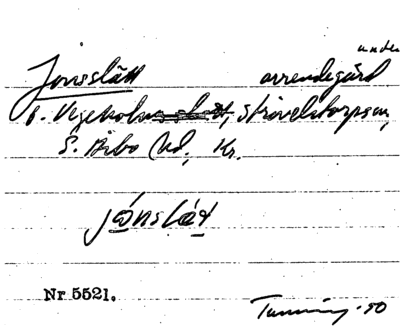 under
Jonsslätt arrendegård
f. Vegeholms slott, Strövelstorps sn,
S. Åsbo hd, Kr.
jònslä́t
Nr 5521.